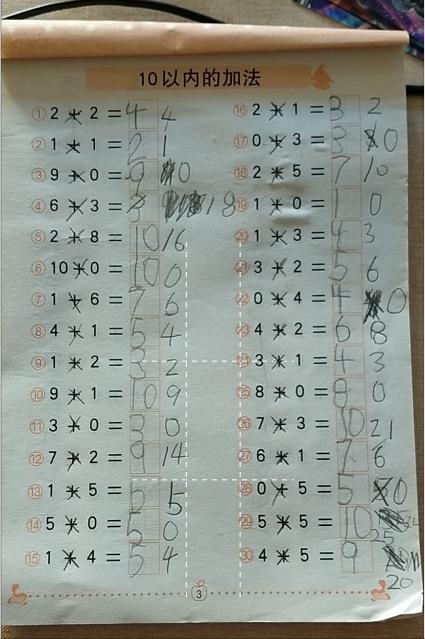 10以内的加法
① 2 * 2 = 4 4
② 1 * 1 = 2 1
③ 9 * 0 = 9 0
④ 6 * 3 = 18
⑤ 2 * 8 = 10 16
⑥ 10 * 0 = 10 0
⑦ 1 * 6 = 7 6
⑧ 4 * 1 = 5 4
⑨ 1 * 2 = 3 2
⑩ 9 * 1 = 10 9
⑪ 3 * 0 = 3 0
⑫ 7 * 2 = 9 14
⑬ 1 * 5 = 5
⑭ 5 * 0 = 5 0
⑮ 1 * 4 = 5 4
⑯ 2 * 1 = 3 2
⑰ 0 * 3 = 3 0
⑱ 2 * 5 = 7 10
⑲ 1 * 0 = 1 0
⑳ 1 * 3 = 4 3
㉑ 3 * 2 = 5 6
㉒ 0 * 4 = 4 0
㉓ 4 * 2 = 6 8
㉔ 3 * 1 = 4 3
㉕ 8 * 0 = 8 0
㉖ 7 * 3 = 10 21
㉗ 6 * 1 = 7 6
㉘ 0 * 5 = 5 0
㉙ 5 * 5 = 10 25
㉚ 4 * 5 = 9 20
3